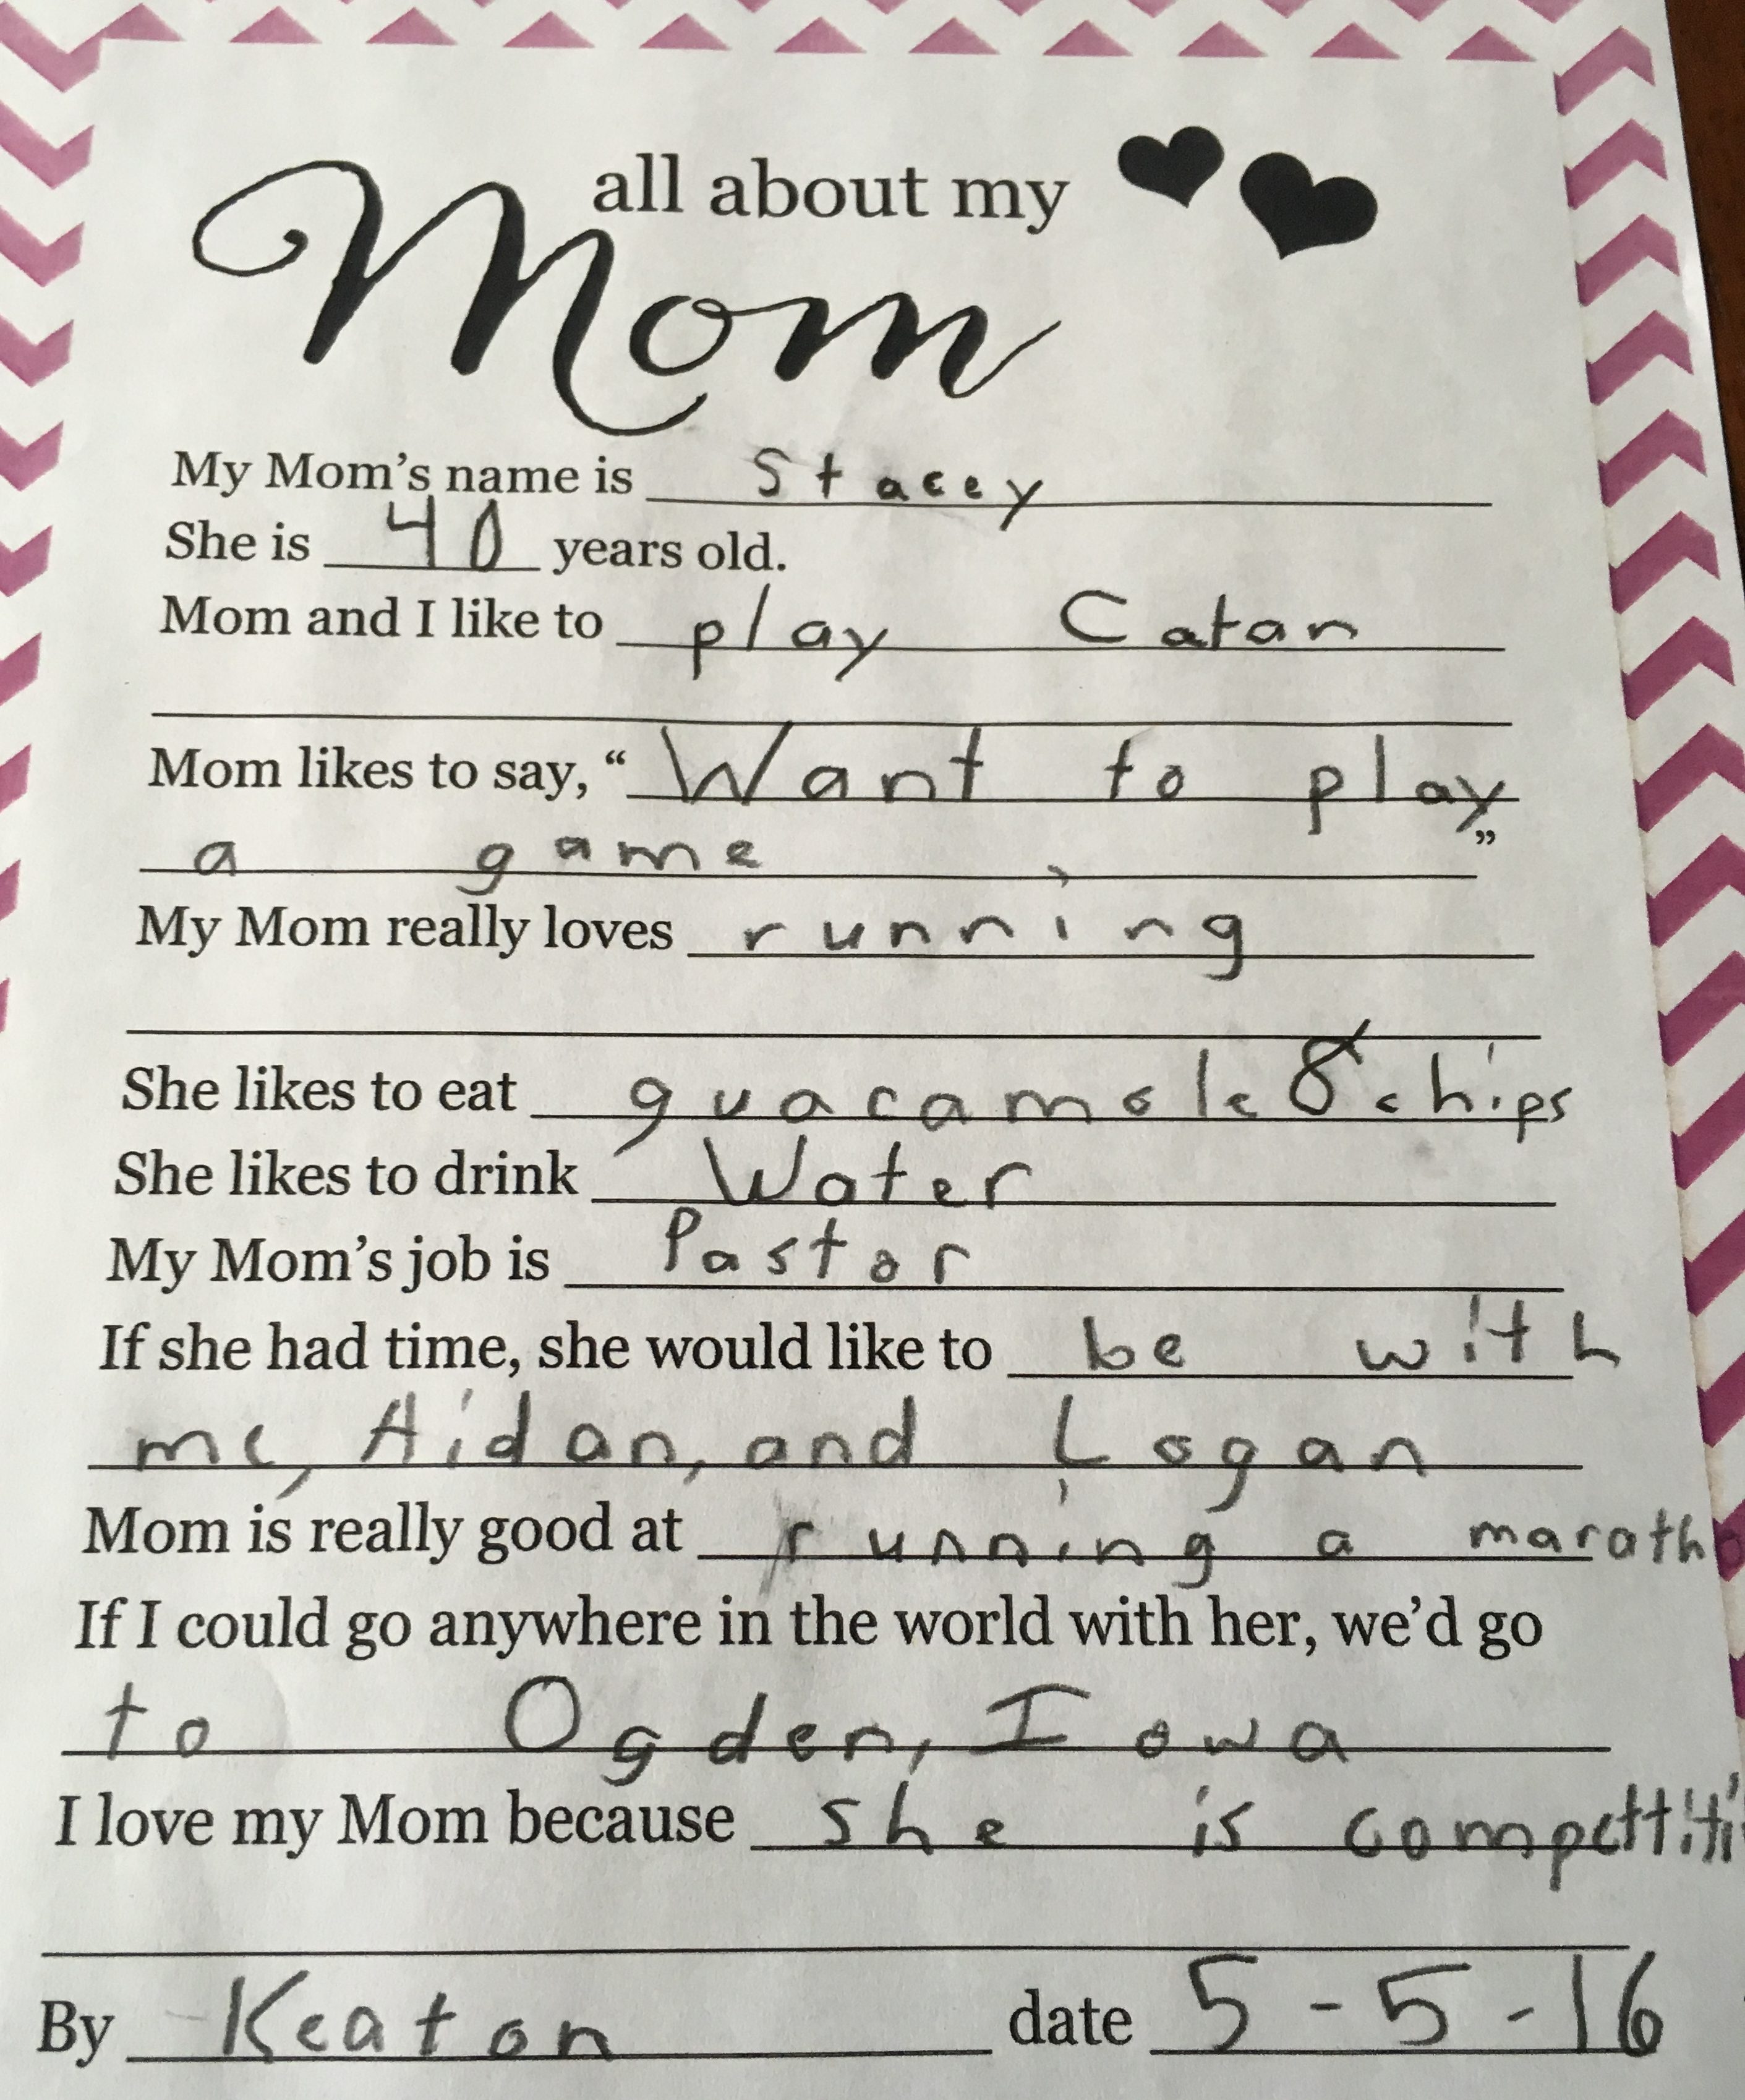 all about my
Mom
My Mom's name is Stacey
She is 40 years old.
Mom and I like to play Catan
Mom likes to say, “Want to play
a game”
My Mom really loves running
She likes to eat guacamole & chips
She likes to drink Water
My Mom's job is Pastor
If she had time, she would like to be with
me, Aidan, and Logan
Mom is really good at running a maratho
If I could go anywhere in the world with her, we'd go
to Ogden, Iowa
I love my Mom because she is compettiti
By Keaton date 5-5-16